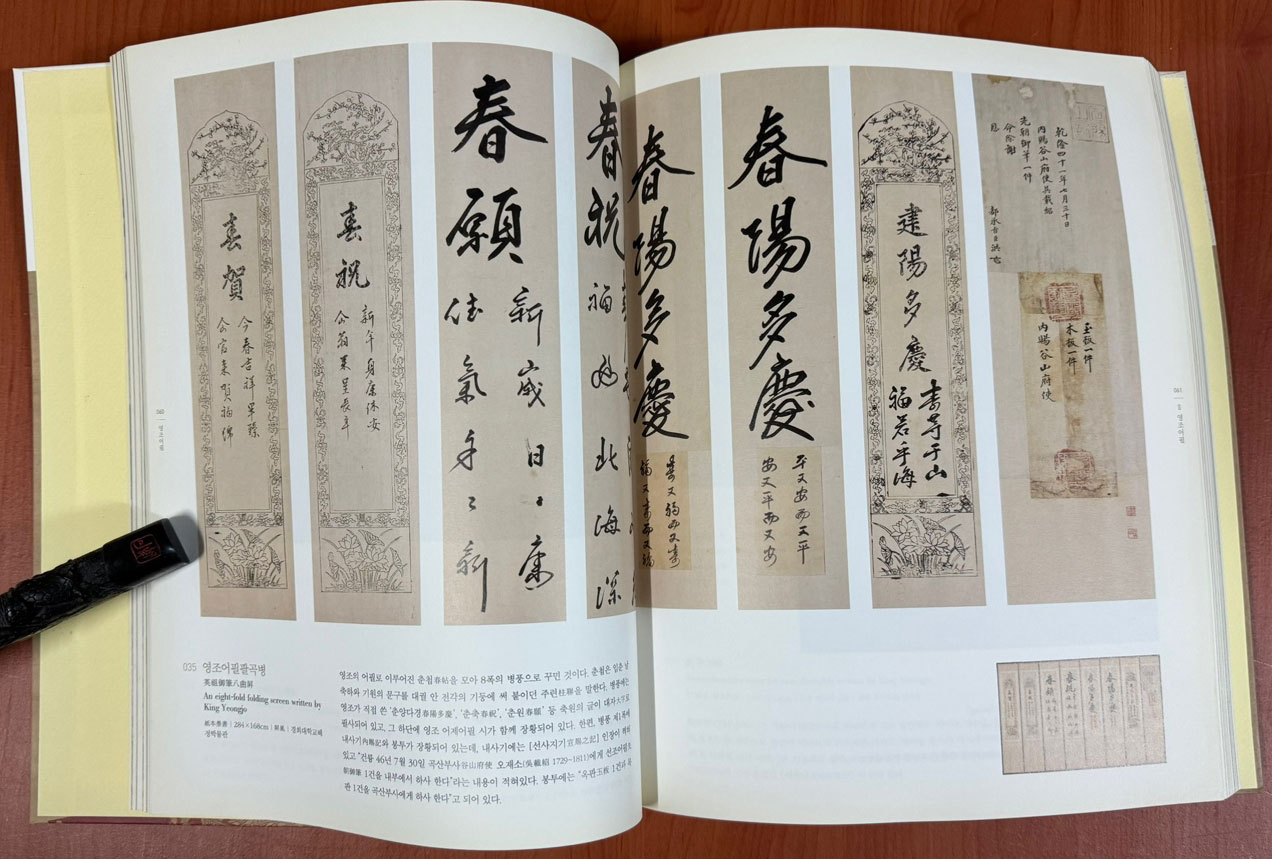 春賀
今春吉祥早臻
春祝
新年身康休安
春願
新歲日日康
佳氣年年新
春祝
福
北海深
春陽多慶
壽又福而又壽
福又壽而又福
春陽多慶
平又安而又平
安又平而又安
建陽多慶
壽等于山
福若乎海
乾隆四十一年七月三十日
內賜谷山府使吳載紹
先朝御筆一件
命除謝
恩
都承旨臣洪
玉板一件
木板一件
內賜谷山府使
040
영조어필
041
3 영조어필
035 영조어필팔곡병
英祖御筆八曲屛
An eight-fold folding screen written by
King Yeongjo
紙本墨書 | 284×168cm | 屛風 | 경희대학교혜
정박물관
영조의 어필로 이루어진 춘첩春帖을 모아 8폭의 병풍으로 꾸민 것이다. 춘첩은 입춘 날
축하와 기원의 문구를 대궐 안 전각의 기둥에 써 붙이던 주련柱聯을 말한다. 병풍에는
영조가 직접 쓴 '춘양다경春陽多慶', '춘축春祝', '춘원春願' 등 축원의 글이 대자大字로
필사되어 있고, 그 하단에 영조 어제어필 시가 함께 장황되어 있다. 한편, 병풍 제1폭에
내사기內賜記와 봉투가 장황되어 있는데, 내사기에는 [선사지기宣賜之記] 인장이 찍혀
있고 "건륭 46년 7월 30일 곡산부사谷山府使 오재소(吳載紹 1729~1811)에게 선조어필先
朝御筆 1건을 내부에서 하사 한다"라는 내용이 적혀있다. 봉투에는 "옥판玉板 1건과 목
판 1건을 곡산부사에게 하사 한다"고 되어 있다.